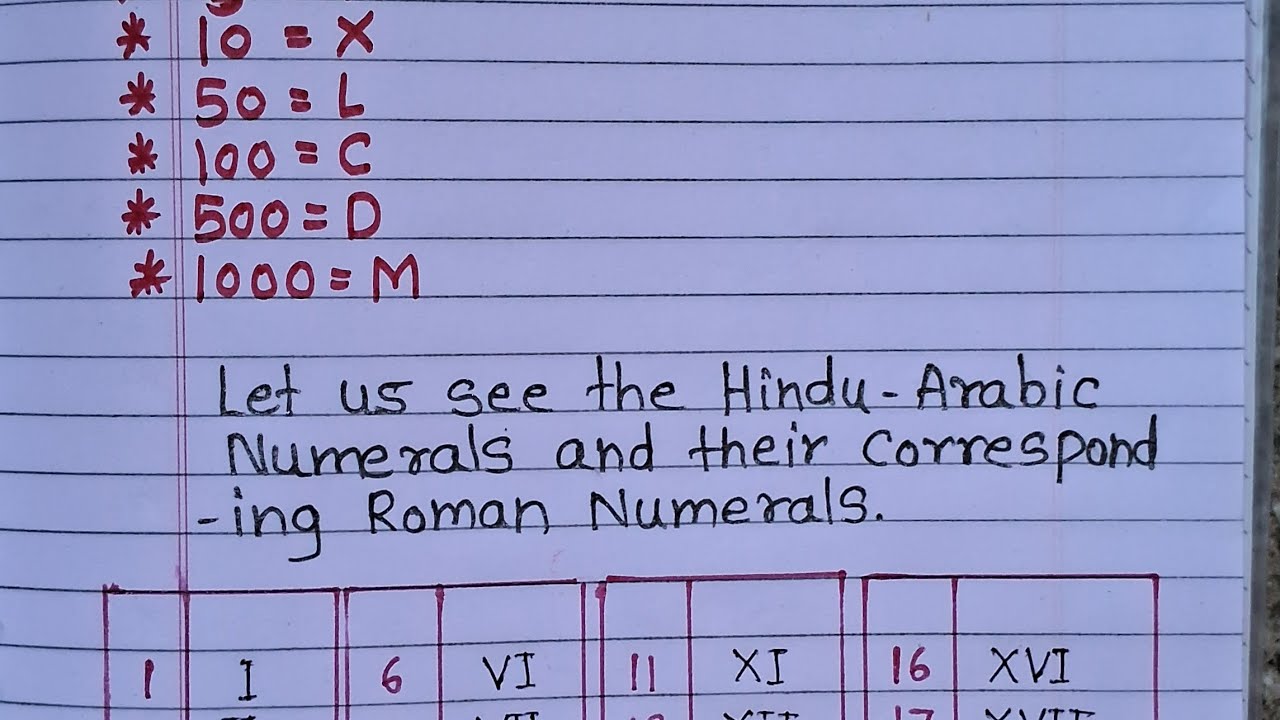 * 10 = X
* 50 = L
* 100 = C
* 500 = D
* 1000 = M
Let us see the Hindu-Arabic
Numerals and their correspond
-ing Roman Numerals.
1 I 6 VI 11 XI 16 XVI